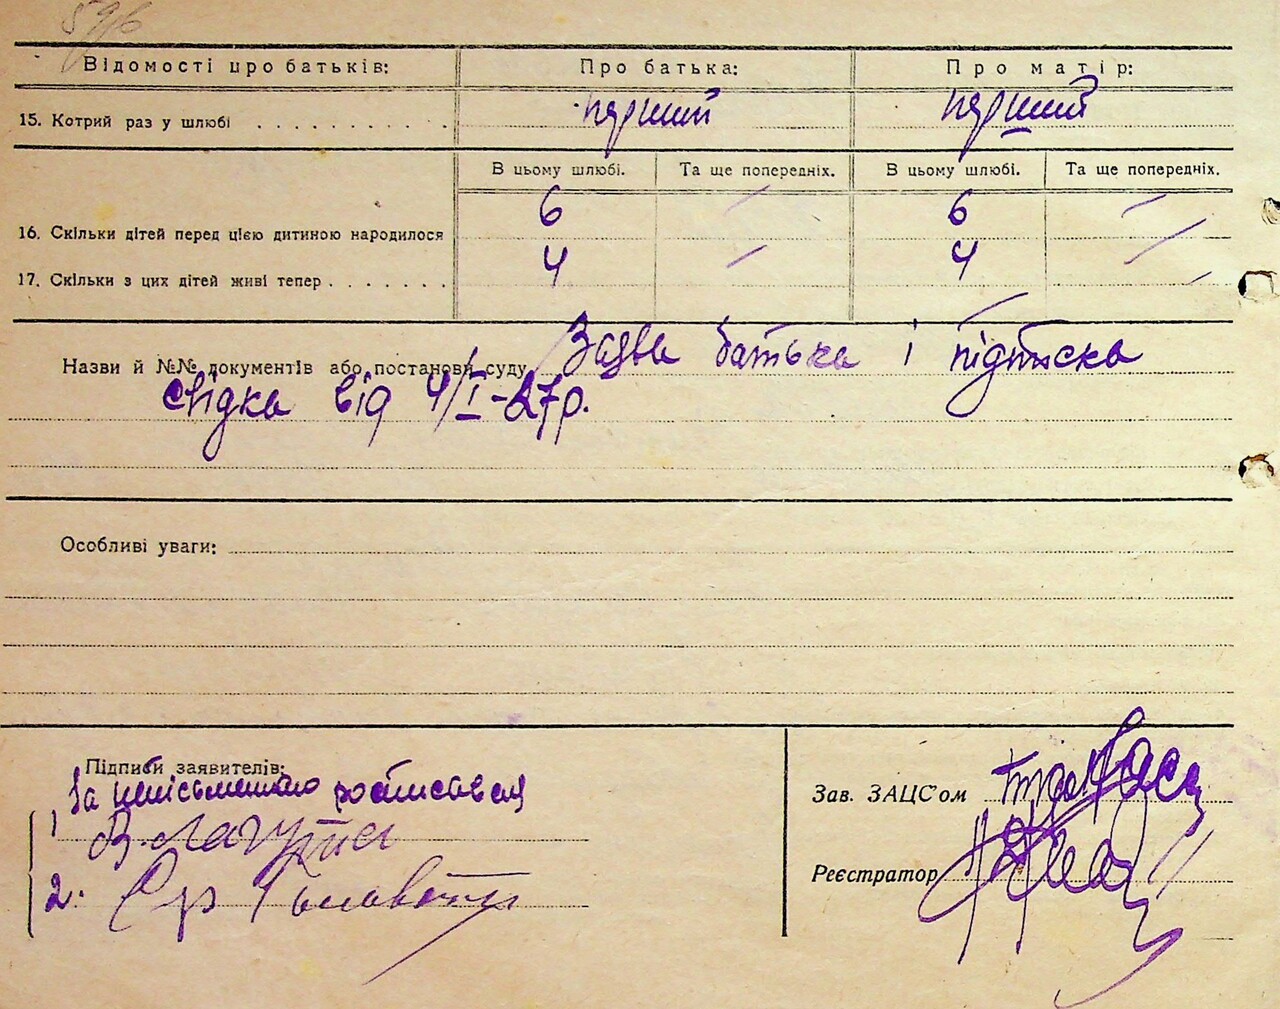 596
Відомості про батьків: Про батька: Про матір:
15. Котрий раз у шлюбі . . . . . . . . . . перший перший
В цьому шлюбі. Та ще попередніх. В цьому шлюбі. Та ще попередніх.
16. Скільки дітей перед цією дитиною народилося 6 — 6 —
17. Скільки з цих дітей живі тепер . . . . . . . 4 — 4 —
Назви й №№ документів або постанови суду Заява батька і підписка
свідка від 4/I-27р.
Особливі уваги:
Підписи заявителів:
За неписьменного росписався
1 В Лагута
2.
Зав. ЗАЦС'ом
Реєстратор